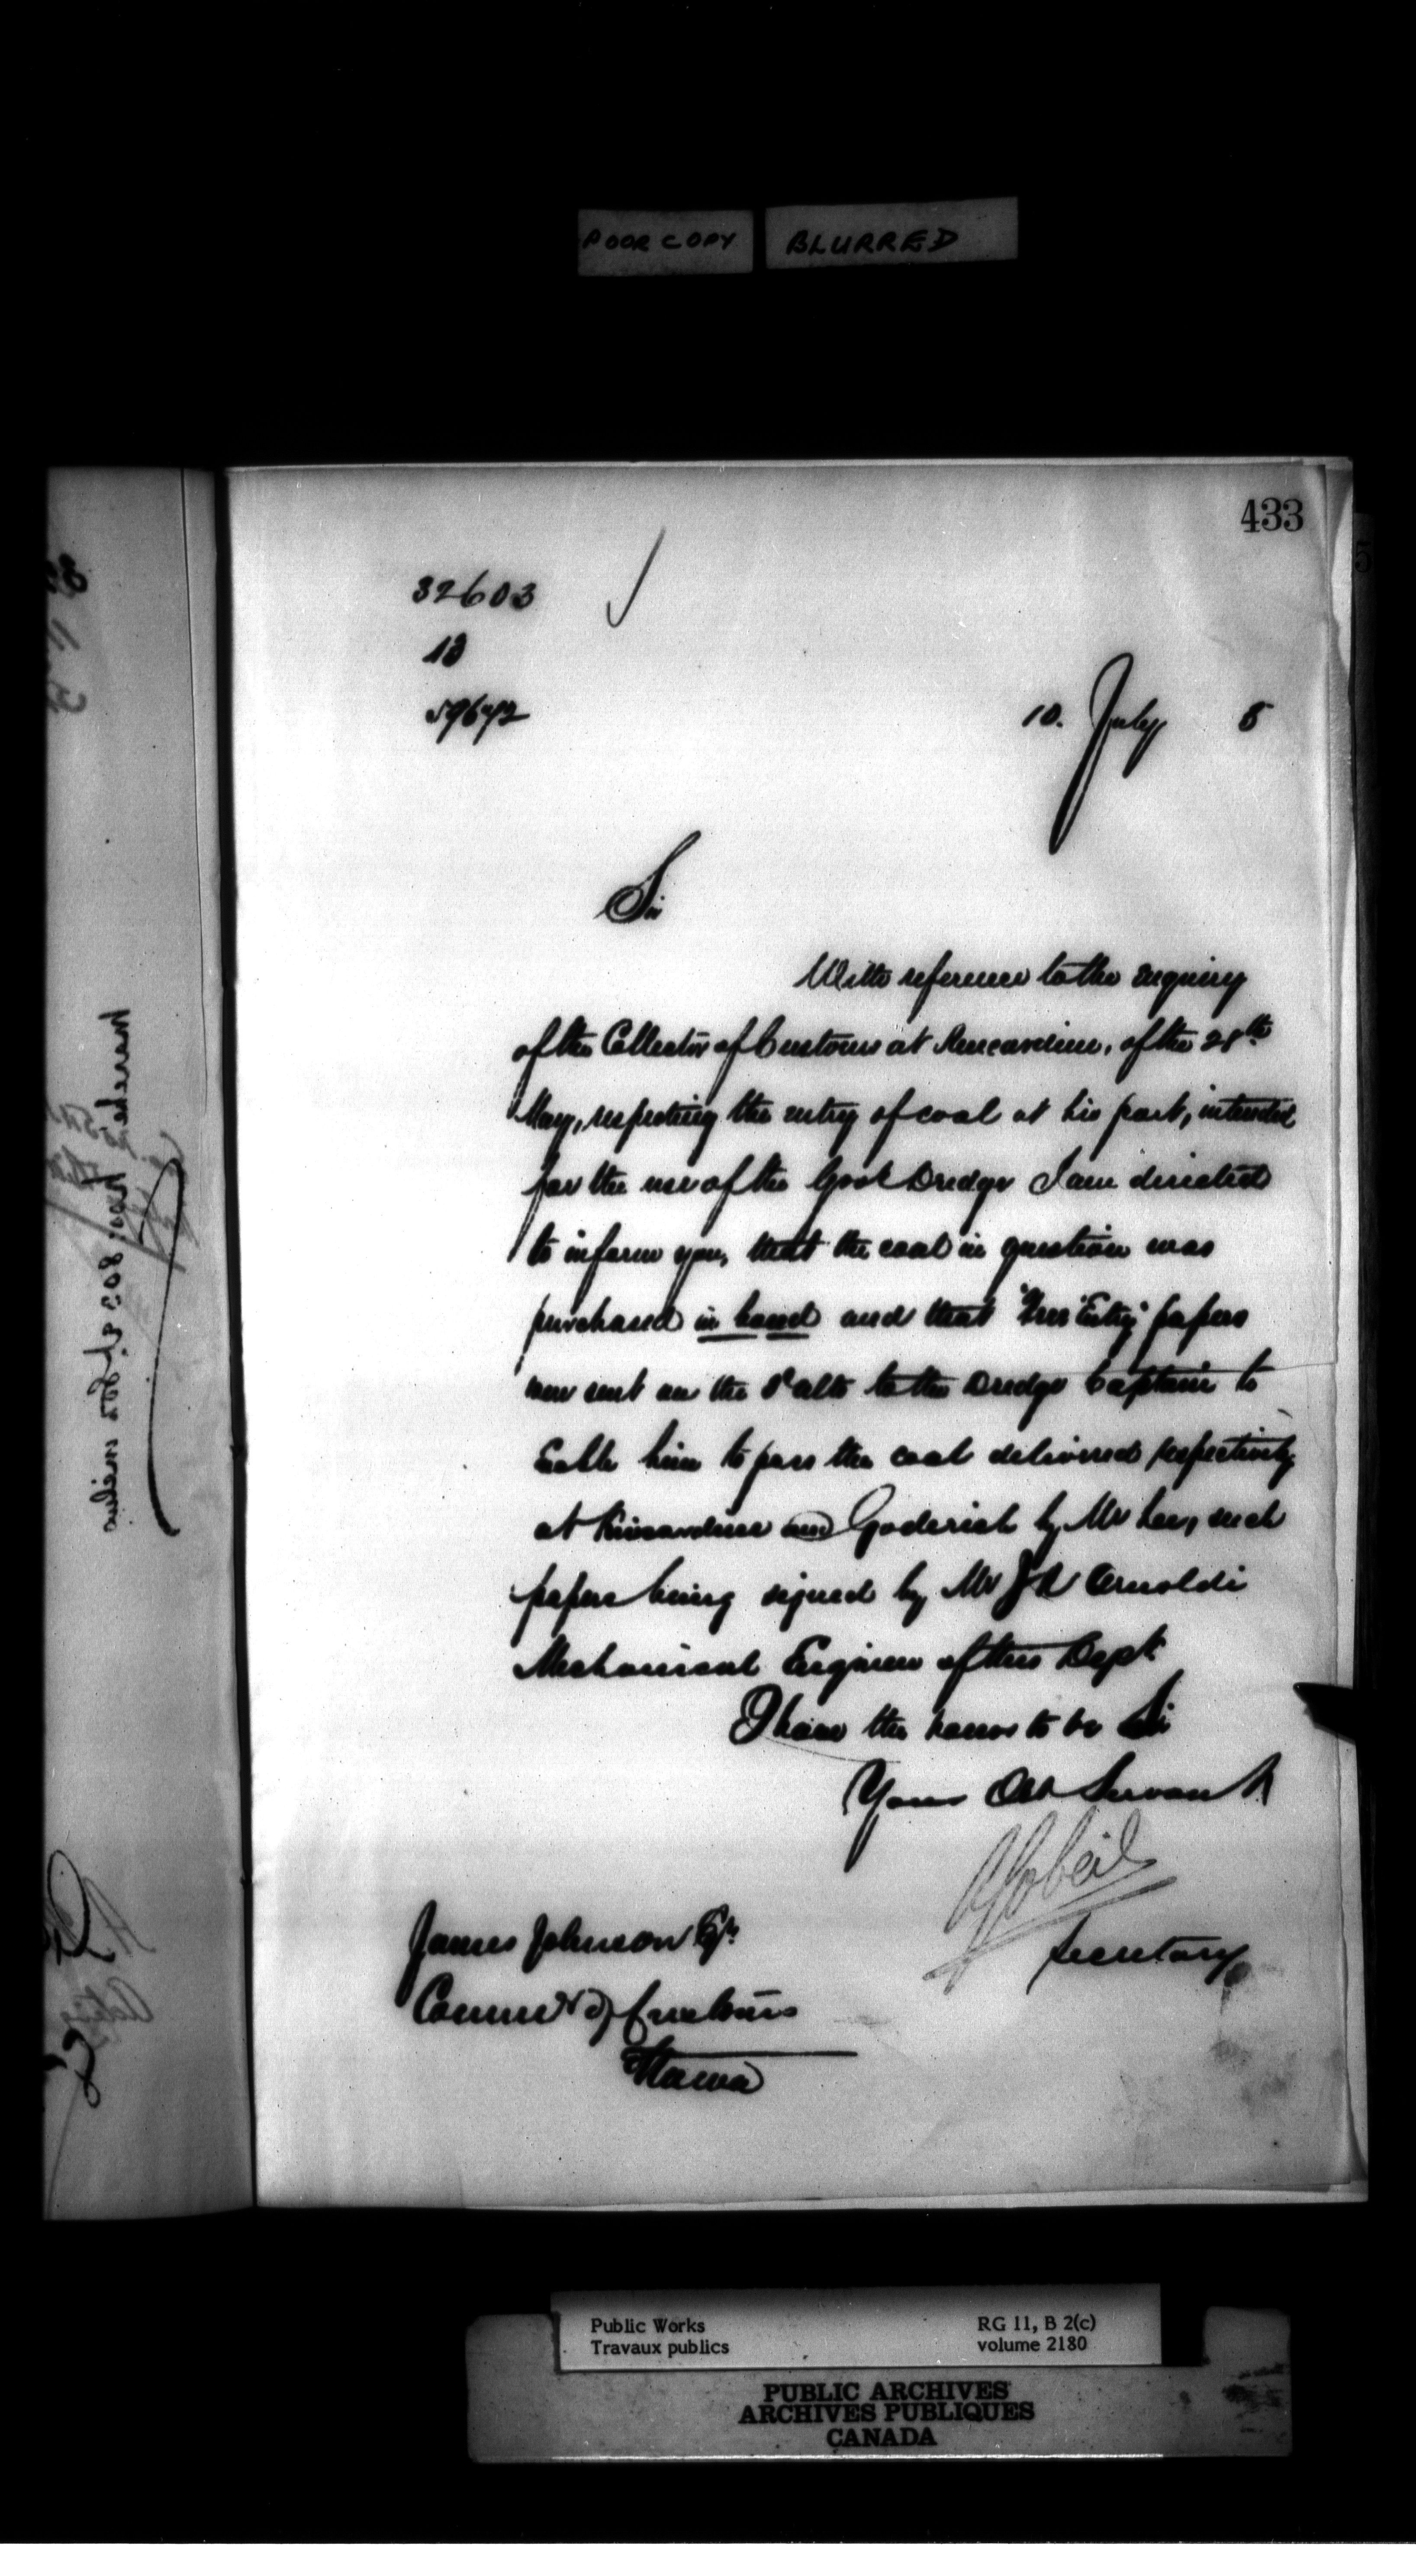 POOR COPY BLURRED
433
32603
13
59672
10. July 5
Sir
With reference to the enquiry
of the Collector of Customs at Kincardine, of the 28th
May, respecting the entry of coal at his port, intended
for the use of the Govt Dredge I am directed
to inform you, that the coal in question was
purchased in bond and that "Free Entry" papers
were sent on the to the Dredge Captain to
him to pass the coal delivered respectively
at Kincardine and Goderich by Mr Lee, such
papers being signed by Mr J R Arnoldi
Mechanical Engineer of this Dept
I have the honor to be Sir
Your Obt Servant
AGobeil
Secretary
James Johnson Esqr
Commr of Customs
Ottawa
Public Works
Travaux publics
RG 11, B 2(c)
volume 2180
PUBLIC ARCHIVES
ARCHIVES PUBLIQUES
CANADA